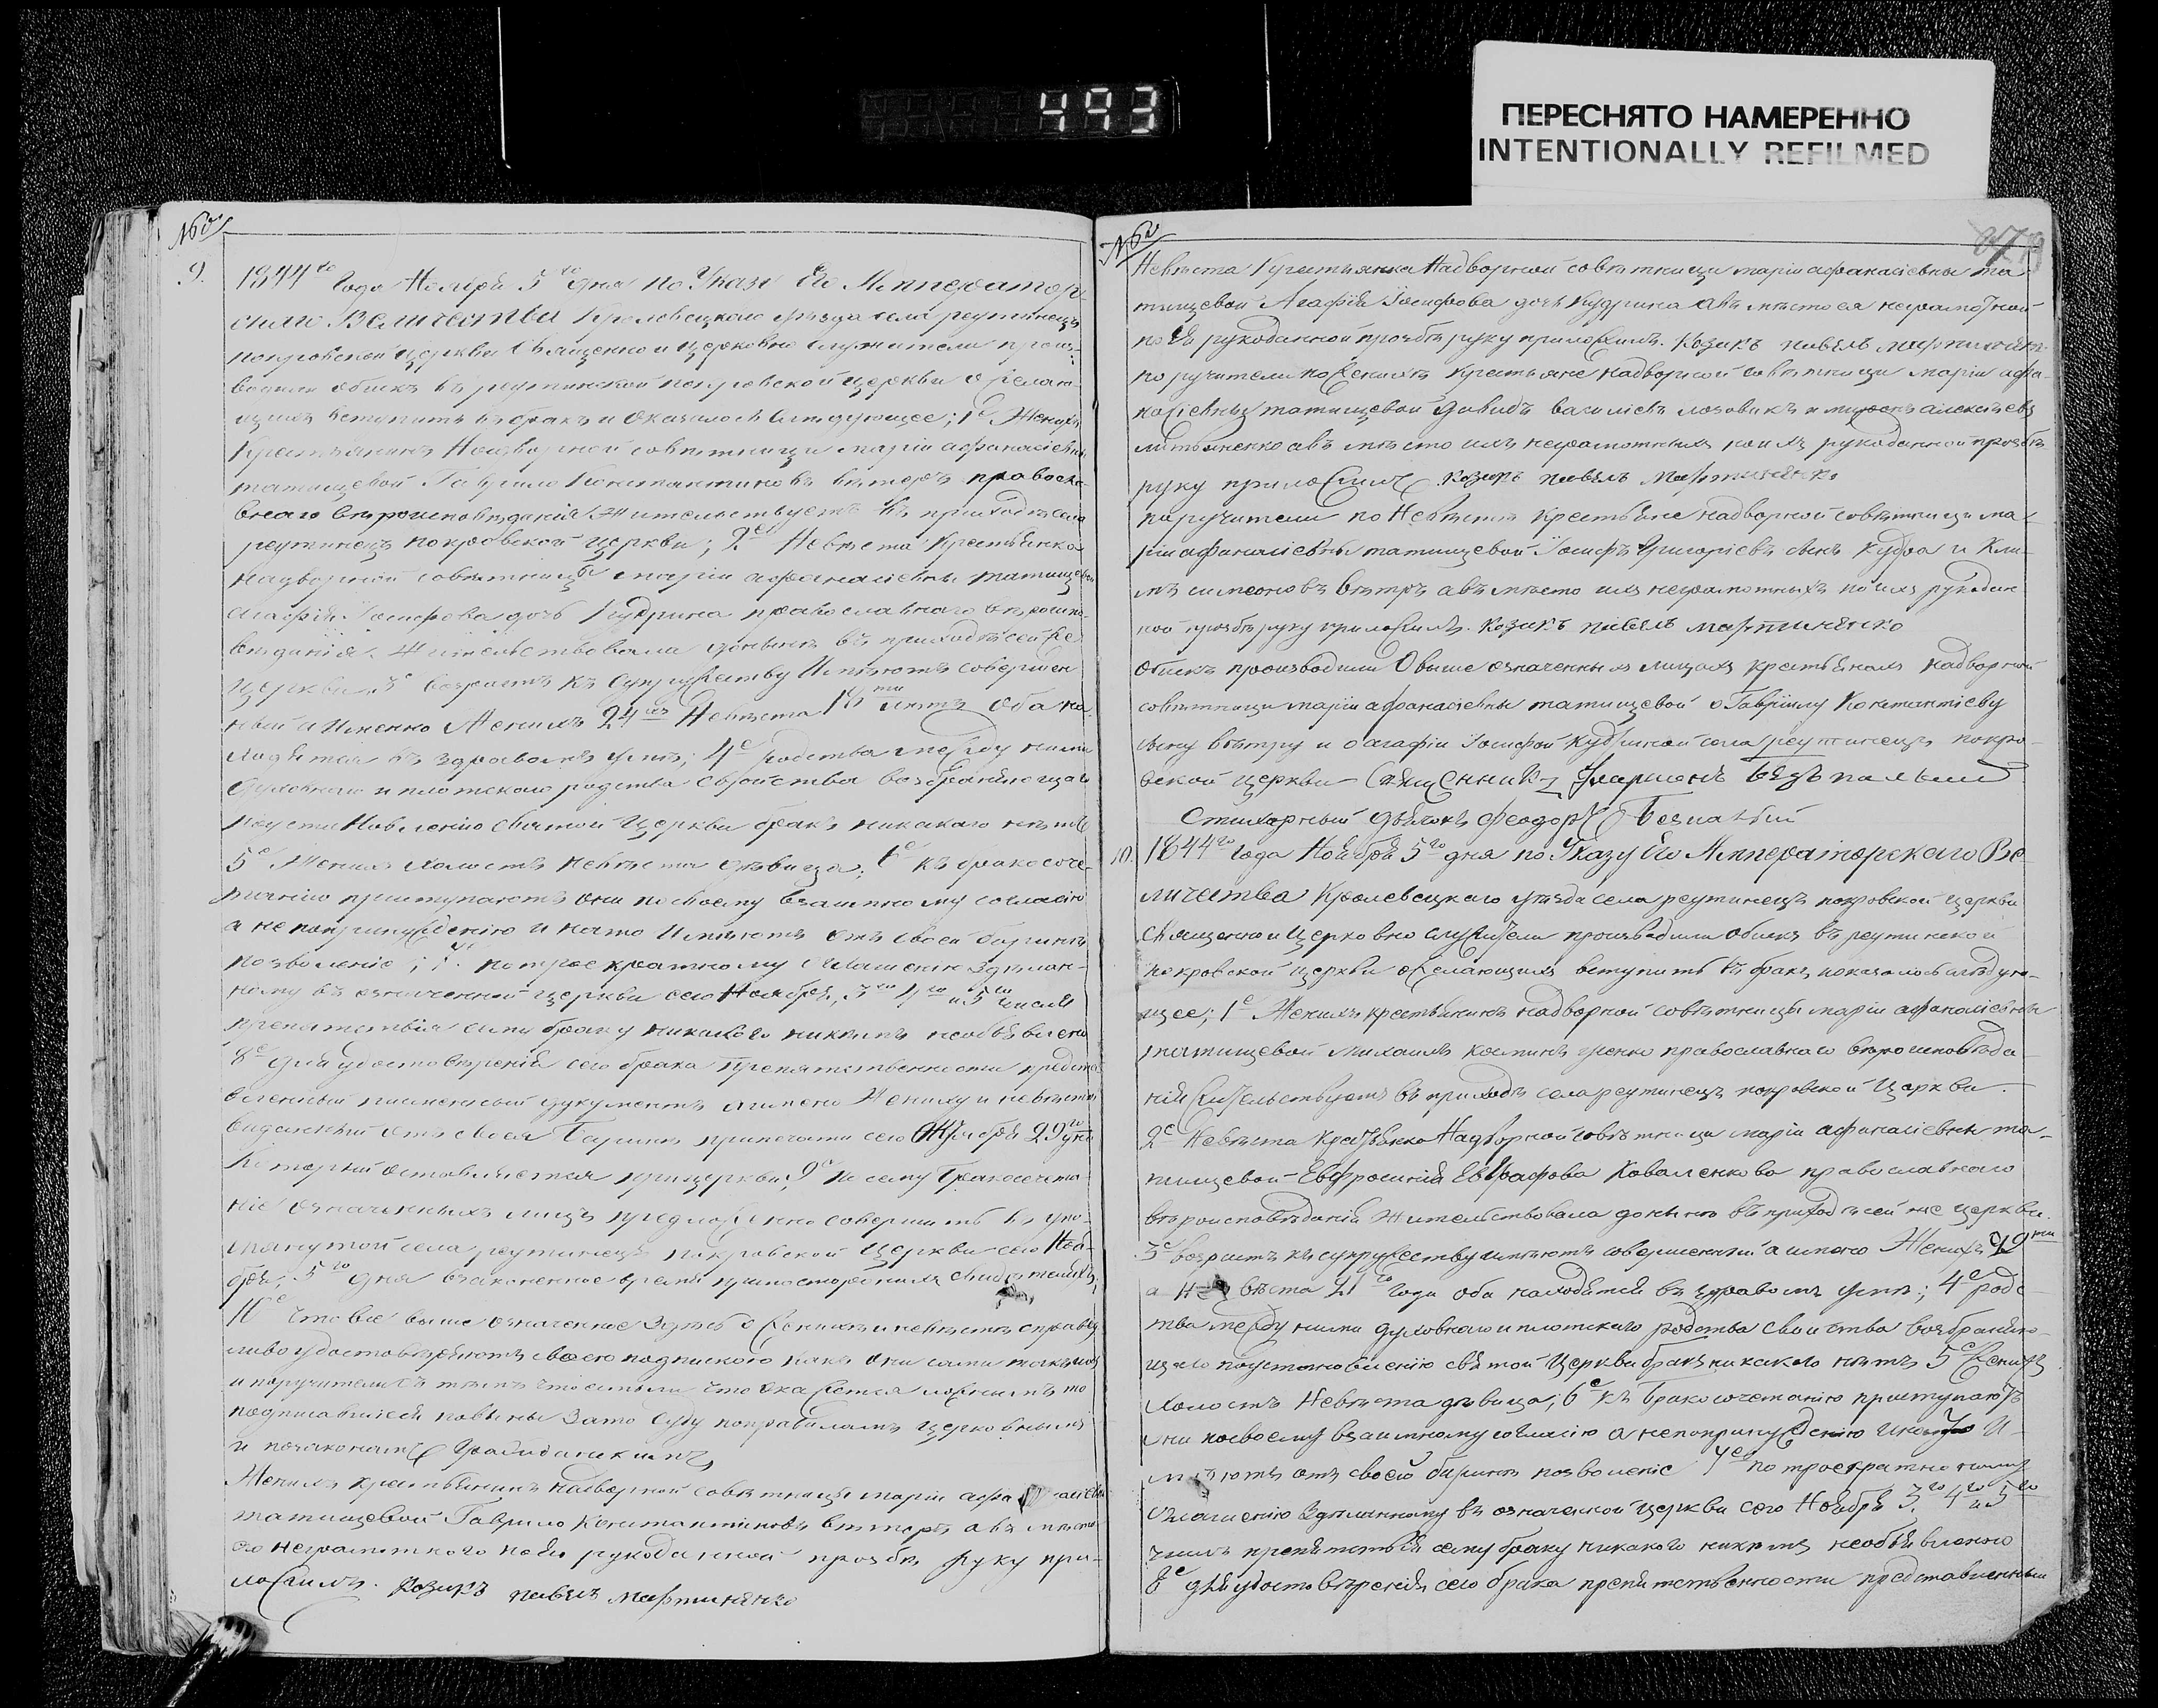 493
ПЕРЕСНЯТО НАМЕРЕННО
INTENTIONALLY REFILMED
№
9.
1844го Года Ноября 5го дня по Указу Его Императорскаго
Величества Кролевецкаго уѣзда села реутинецъ
покровской церкви Священно и церковно служители произ-
водили обискъ въ реутинской покровской церкви о желаю-
щихъ вступить въ бракъ и оказалось слѣдующее; 1е Женихъ
Крестьянинъ Надворной совѣтници маріи афанасіевны
татищевой Гаврило Константиновъ вѣтеръ правосла-
внаго вѣроисповѣданія жительствуетъ въ приходѣ села
реутинецъ покровской церкви; 2е Невѣста Крестьянка
надворной совѣтници маріи афанасіевны татищевой
агафія Іосифова дочь Кудрина православнаго вѣроиспо-
вѣданія жительствовала донынѣ въ приходѣ сей же
церкви 3е возрастъ къ супружеству Имѣютъ совершен
ный а Именно Женихъ 24 Невѣста 18ти лѣтъ оба на-
ходятся въ здравомъ умѣ; 4е родства между ними
духовнаго и плотскаго родства свойства возбраняющаго
по установленію святой церкви бракъ никакаго нѣтъ
5е Женихъ холостъ невѣста дѣвица; 6е къ бракосоче-
танію приступаютъ они по своему взаимному согласію
а не по принужденію и на то Имѣютъ отъ своей барины
позволеніе; 7е по троекратному оглашенію здѣлан-
ному въ означенной церкви сего Ноября 3го 4го и 5го числъ
препятствія сему браку никакого никемъ необъявлено
8е для удостовѣренія сего брака препятственности предста
вленный писменный документъ а имено Жениху и невѣсте
виданный отъ своея Барини припечати сего Октября 29 дня
который оставляется при церкви; 9е По сему бракосочета-
ніе означенныхъ лицъ предположено совершить въ упо-
мянутой села реутинецъ покровской церкви сего Ноя-
бря 5го дня взаконенное время припостороннихъ свидѣтеляхъ;
10е что все выше означенное здесь о женихѣ и невѣстѣ справед
ливо удостовѣряютъ своею подпискою какъ они сами такъ
и поручители съ темъ что если что окажется ложнымъ то
подписавшіеся повинны зато суду поправиламъ церковнымъ
и позаконамъ Гражданскимъ
Женихъ крестьянинъ надворной совѣтници маріи афанасіевны
татищевой Гаврило Константиновъ вѣтеръ а въ мѣсто
его неграмотного поего рукоданной прозбѣ руку при-
ложилъ. Козакъ павелъ мартиненко
№
Невѣста Крестьянка Надворной совѣтници маріи афанасіевны та
тищевой Агафія Іосифова дочь Кудрина авъ мѣсто ея неграмотной
по Её рукоданной прозбѣ руку приложилъ. Козакъ павелъ мартиненко
поручители по женихѣ крестьяне надворной совѣтници маріи афа-
насіевны татищевой давидъ василіевъ лозовикъ и алексѣевъ
авъ мѣсто ихъ неграмотныхъ по ихъ рукоданной прозбѣ
руку приложилъ Козакъ павелъ мартиненко
поручители по Невѣстѣ крестьяне надворной совѣтници ма-
ріи афанасіевны татищевой Іосифъ Григоріевъ сынъ Кудра и Кли-
мъ симеоновъ вѣтръ авъ мѣсто ихъ неграмотныхъ по ихъ рукодан
ной прозбѣ руку приложилъ. Козакъ павелъ мартиненко
обискъ производили Овыше означенныхъ лицахъ крестьянахъ надворной
совѣтници маріи афанасіевны татищевой о Гавріилу Константіеву
сыну вѣтру и о агафіи Іосифой Кудриной села реутинецъ покро-
вской церкви Священникъ Иларионъ безпалый
Стихарный дьячокъ Феодоръ Безпалый
10. 1844го Года Ноября 5го дня по Указу Его Императорскаго Ве-
личества Кролевецкаго уѣзда села реутинецъ покровской церкви
священно и церковно служители производили обискъ въ реутинской
покровской церкви о желающихъ вступить въ бракъ показалось слѣдую-
щее; 1е Женихъ крестьянинъ надворной совѣтницы маріи афанасіевны
татищевой михаилъ православнаго вѣроисповѣда-
нія Жительствуетъ въ приходѣ села реутинецъ покровской церкви.
2е Невѣста крестьянка Надворной совѣтници маріи афанасіевны та-
тищевой Евфросинія Евграфова Коваленкова православнаго
вѣроисповѣданія жительствовала донынѣ въ приходѣ сей же церкви.
3е возрастъ къ супружеству имѣютъ совершенный а имено Женихъ
а Невѣста 21го года оба находятся въ здравомъ умѣ; 4е родс
тва между ними духовнаго и плотскаго родства свойства возбраняю-
щаго поустановленію святой церкви бракъ никакого нѣтъ 5е Женихъ
холостъ Невѣста дѣвица; 6е къ бракосочетанію приступаютъ
они посвоему взаимному согласію а непопринужденію И
мѣютъ отъ своей барини позволеніе 7е по троекратно тому
оглашенію здѣланному въ означеной церкви сего Ноября 3го 4го и 5го
числъ препятствій сему браку никакого никемъ необъявленно
8е для удостовѣренія сего брака препятственности представленный